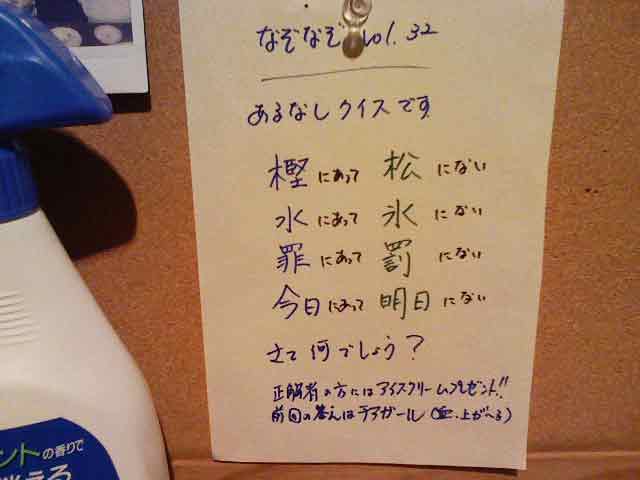 なぞなぞ vol.32
あるなしクイズです
樫にあって 松にない
水にあって 氷にない
罪にあって 罰にない
今日にあって 明日にない
さて何でしょう?
正解者の方にはアイスクリームプレゼント!!
前回の答えはテアガール(皿、上がへる)
ントの香りで
消える